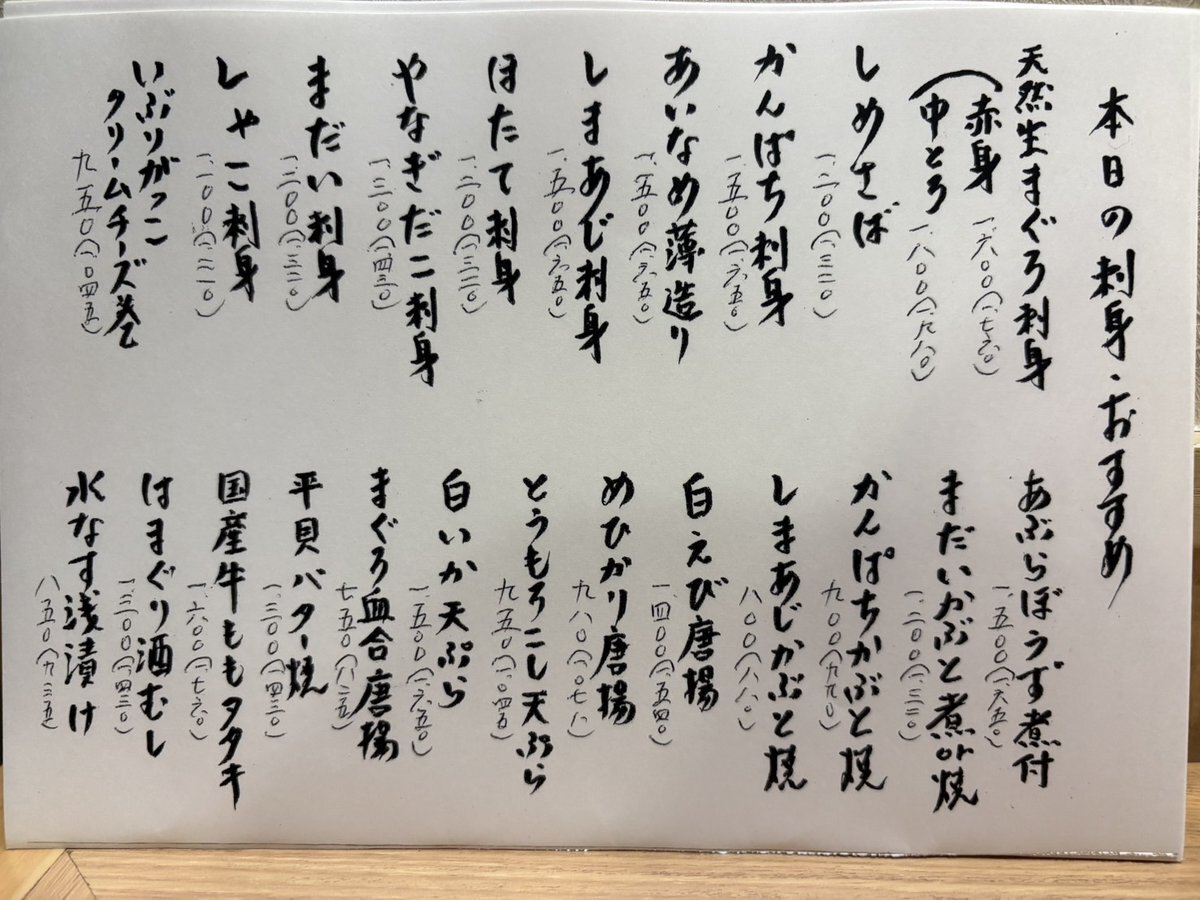 本日の刺身・おすすめ
天然生まぐろ刺身
赤身 一、六〇〇(一、七六〇)
中とろ 一、八〇〇(一、九八〇)
しめさば
一、二〇〇(一、三二〇)
かんぱち刺身
一、五〇〇(一、六五〇)
あいなめ薄造り
一、五〇〇(一、六五〇)
しまあじ刺身
一、五〇〇(一、六五〇)
ほたて刺身
一、二〇〇(一、三二〇)
やなぎだこ刺身
一、三〇〇(一、四三〇)
まだい刺身
一、二〇〇(一、三二〇)
しゃこ刺身
一、一〇〇(一、二一〇)
いぶりがっこ
クリームチーズ巻
九五〇(一、〇四五)
あぶらぼうず煮付
一、五〇〇(一、六五〇)
まだいかぶと煮or焼
一、二〇〇(一、三二〇)
かんぱちかぶと焼
九〇〇(九九〇)
しまあじかぶと焼
八〇〇(八八〇)
白えび唐揚
一、四〇〇(一、五四〇)
めひかり唐揚
九八〇(一、〇七八)
とうもろこし天ぷら
九五〇(一、〇四五)
白いか天ぷら
一、五〇〇(一、六五〇)
まぐろ血合唐揚
七五〇(八二五)
平貝バター焼
一、三〇〇(一、四三〇)
国産牛ももタタキ
一、六〇〇(一、七六〇)
はまぐり酒むし
一、三〇〇(一、四三〇)
水なす浅漬け
八五〇(九三五)